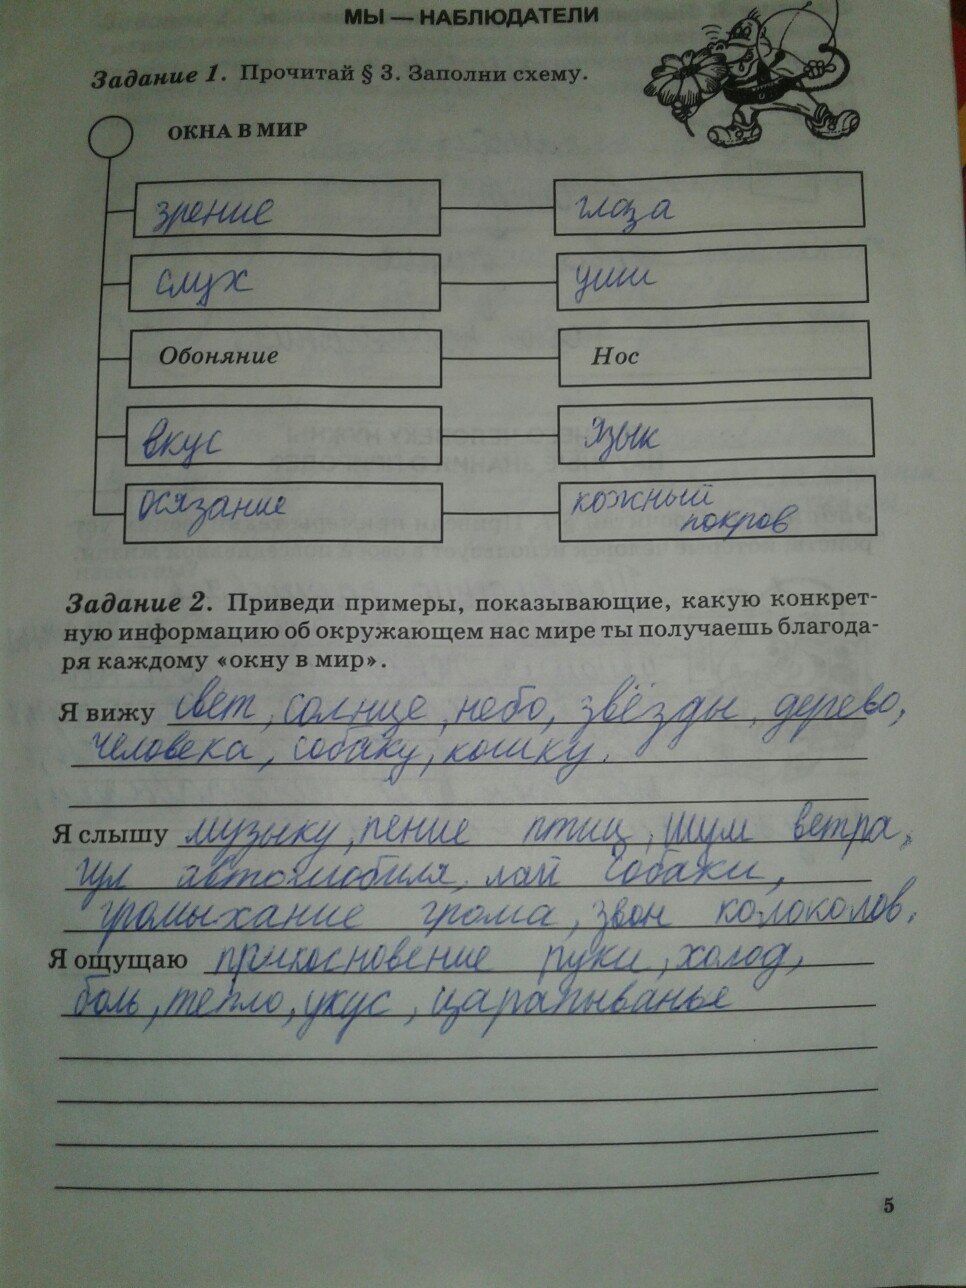 МЫ — НАБЛЮДАТЕЛИ
Задание 1. Прочитай § 3. Заполни схему.
ОКНА В МИР
зрение глаза
слух уши
Обоняние Нос
вкус язык
осязание кожный
покров
Задание 2. Приведи примеры, показывающие, какую конкрет-
ную информацию об окружающем нас мире ты получаешь благода-
ря каждому «окну в мир».
Я вижу свет, солнце, небо, звёзды, дерево,
человека, собаку, кошку.
Я слышу музыку, пение птиц, шум ветра,
гул автомобиля, лай собаки,
громыхание грома, звон колоколов.
Я ощущаю прикосновение руки, холод,
боль, тепло, укус, царапыванье
5